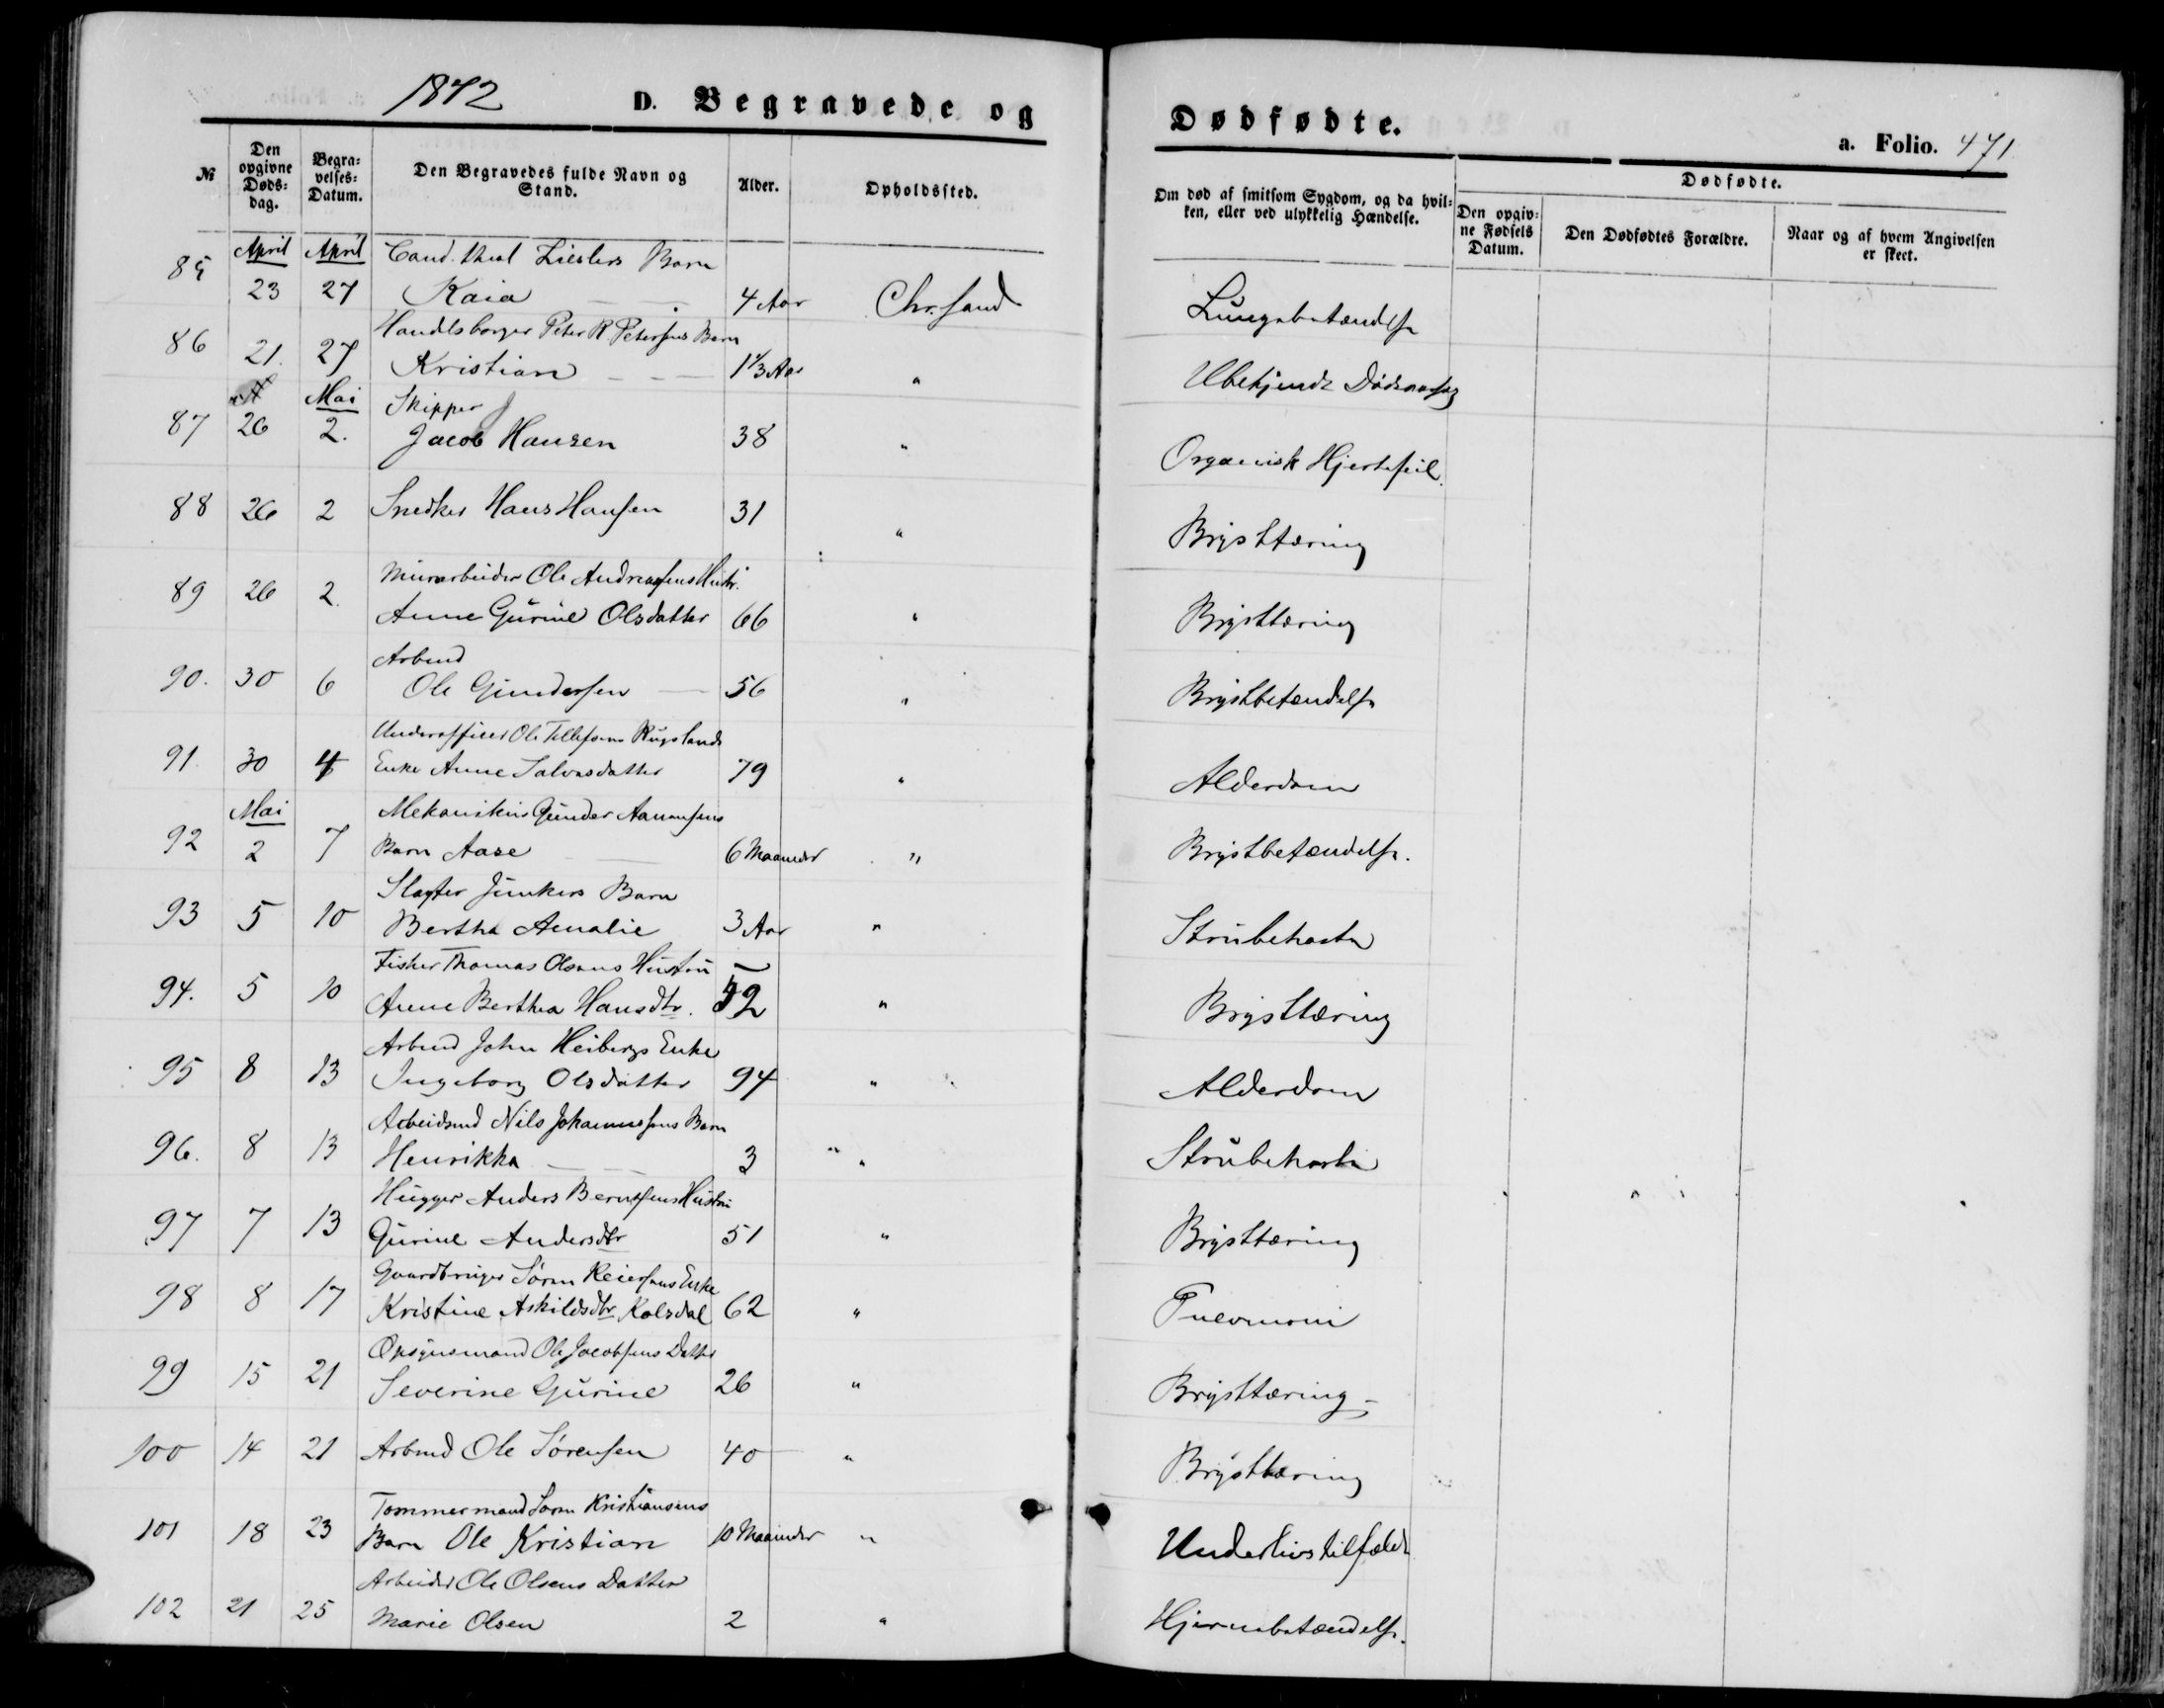 1872 D. Begravede og Dødfødte.
a. Folio. 471
№ Den opgivne Døds-dag. Begra-velses-Datum. Den Begravedes fulde Navn og Stand. Alder. Opholdssted. Om død af smitsom Sygdom, og da hvil-ken, eller ved ulykkelig Hændelse. Dødfødte. Den opgiv-ne Fødsels Datum. Den Dødfødtes Forældre. Naar og af hvem Angivelsen er skeet.
April April Cand. theol Barn
85 23 27 Kaia 4 Aar Chr.sand Lungebetændelse
Handelsborger Peter R. Petersens Barn
86 21. 27 Kristian 1 1/3 Aar " Ubekjendt Dødsaarsag
A Mai Skipper
87 26 2. Jacob Hansen 38 " Organisk Hjertefeil.
88 26 2 Snedker Hans Hansen 31 " Brysttæring
Murarbeider Ole Andreassens Hustr.
89 26 2. Anne Gurine Olsdatter 66 " Brysttæring
Arbmd
90. 30 6 Ole Gundersen 56 " Brystbetændelse
Underofficer Ole Tellefsens Rugslands
91. 30 4 Enke Anne Salvesdatter 79 " Alderdom
Mai Mekanikus Gunder Aanonsens
92 2 7 Barn Aase 6 Maaneder " Brystbetændelse.
Slagter Junkers Barn
93 5 10 Bertha Amalie 3 Aar " Strubehoste
Fisker Thomas Olsens Hustru
94. 5 10 Anne Berthea Hansdtr. 52 " Brysttæring
Arbmd John Heibergs Enke
95 8 13 Ingeborg Olsdatter 94 " Alderdom
Arbeidsmd Nils Johannessens Barn
96. 8 13 Henrikka 3 " " Strubehoste
Hugger Anders Berntsens Hustru
97 7 13 Gurine Andersdtr 51 " Brysttæring
Gaardbruger Søren Reiersens Enke
98 8 17 Kristine Askildsdtr. Kolsdal 62 " Pneumoni
Opsynsmand Ole Jacobsens Datter
99 15 21 Severine Gurine 26 " Brysttæring
100 14 21 Arbmd Ole Sørensen 40 " Brysttæring
Tømmermand Søren Kristiansens
101 18 23 Barn Ole Kristian 10 Maaneder " Underlivstilfælde
Arbeider Ole Olsens Datter
102 21 25 Marie Olsen 2 " Hjernebetændelse.